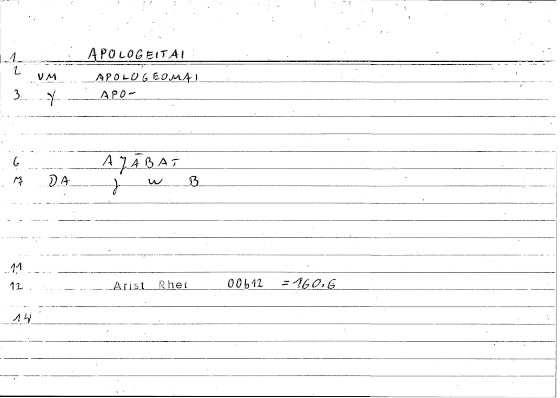 1 APOLOGEITAI
2 VM APOLOGEOMAI
3 γ APO-
6 AJĀBAT
7 DA j w B
11
12 Arist Rhet 00b12 =160.6
14